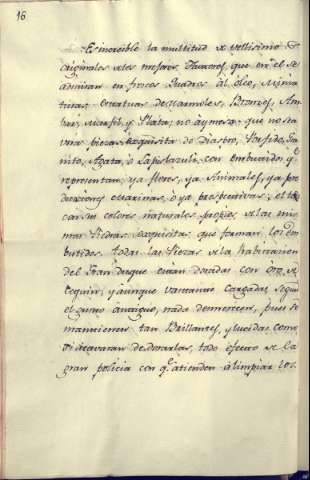 16
Es increible la multitud de vellisimos
originales de los mejores Autores, que en el se
admiran en frescos Quadros al óleo, Minia
turas Estatuas de Marmoles, Bronzes, Am
bar, Marfil, y Plata; no ay mesa que no sea
una pieza exquisita de Diaspro, Porfido, Gra
nito, Agata, o Lapislazuli, con embutidos q.
representan, ya flores, ya Animales, ya pro
ducciones marinas, ó ya prespectivas;
con colores naturales propios de las mis
mas Piedras exquisitas que forman los em
butidos. todas las Piezas de la habitacion
del Gran duque estan doradas con oro de
Zequin; y aunque bastante cargadas segun
el gusto antiguo, nada desmerecen, pues se
mantienen tan Brillantes, y lucidas como
si acavaran de dorarlas, todo efecto de la
gran policia con q.e atienden á limpiar los.